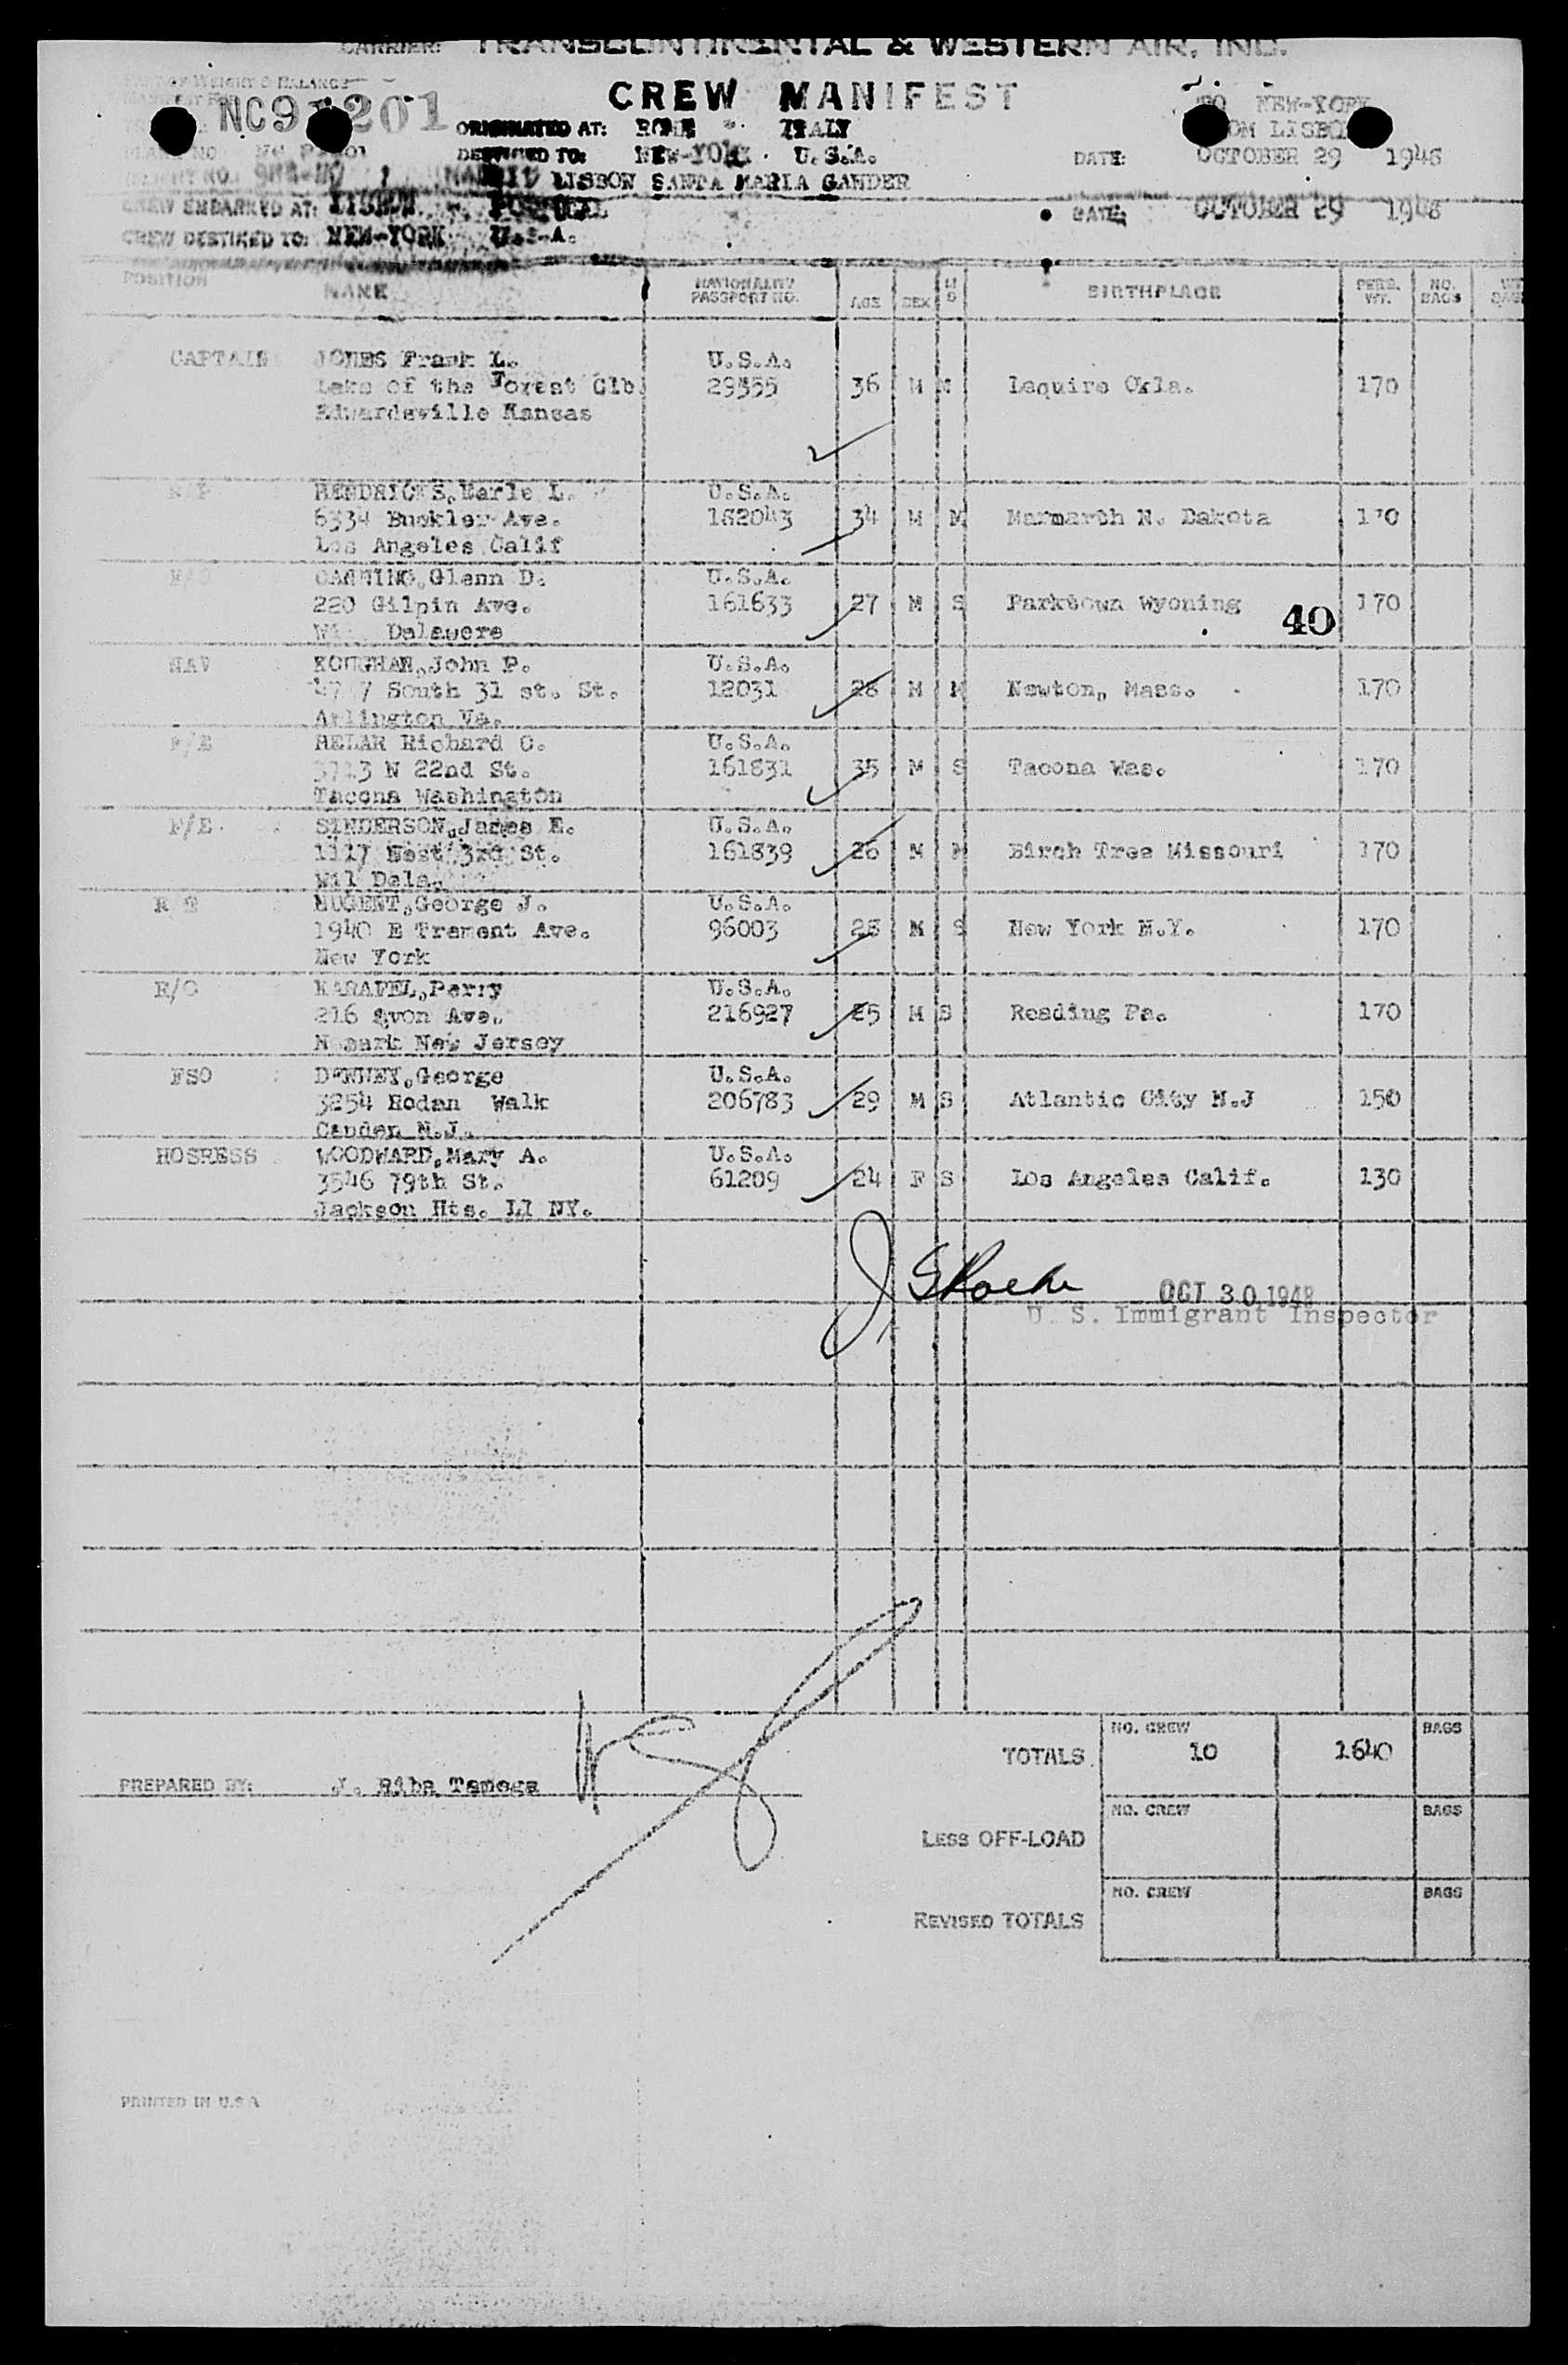 CARRIER: TRANSCONTINENTAL & WESTERN AIR, INC.
WEIGHT & BALANCE
CREW MANIFEST
NC9 201
TO NEW-YORK
ORIGINATED AT: ROME ITALY
LISBO
DESTINED TO: NEW-YORK U.S.A.
DATE: OCTOBER 29 1948
LISBON SANTA MARIA GANDER
CREW EMBARKED AT: LISBON PORTUGAL
DATE: OCTOBER 29 1948
CREW DESTINED TO: NEW-YORK U.S.A.
POSITION NAME NATIONALITY PASSPORT NO. AGE SEX M S BIRTHPLACE PERS. WT. NO. BAGS
CAPTAIN JONES Frank L. U.S.A.
Lake of the Forest Clb. 29355 36 M M Lequire Okla. 170
Edwardsville Kansas
HENDRICKS,Earle L. U.S.A.
6334 Buckler Ave. 34 M M Marmarth N. Dakota 170
Los Angeles Calif
Glenn D. U.S.A.
220 Gilpin Ave. 161633 27 M S Parktown Wyoning 170
40
Delawere
NAV John P. U.S.A.
South 31 st. St. 12031 28 M M Newton, Mass. 170
Arlington Va.
F/E HELAR Richard C. U.S.A.
3713 N 22nd St. 161831 35 M S Tacona Was. 170
Tacona Washington
F/E SINDERSON,James E. U.S.A.
1117 West 3rd St. 161839 26 M M Birch Tree Missouri 170
Wil Dela.
NUGENT,George J. U.S.A.
1940 E Tremont Ave. 96003 M S New York N.Y. 170
New York
R/O KARAFEL,Perry U.S.A.
216 Avon Ave. 216927 25 M S Reading Pa. 170
Newark New Jersey
FSO DENNEY,George U.S.A.
3254 Rodan Walk 206783 29 M S Atlantic City N.J 150
Camden N.J.
HOSRESS WOODWARD,Mary A. U.S.A.
3546 79th St. 61209 24 F S LOs Angeles Calif. 130
Jackson Hts. LI NY.
OCT 30 1948
U. S. Immigrant Inspector
TOTALS NO. CREW 10 1640 BAGS
PREPARED BY: J. Riba Tamega
LESS OFF-LOAD NO. CREW BAGS
REVISED TOTALS NO. CREW BAGS
PRINTED IN U.S.A